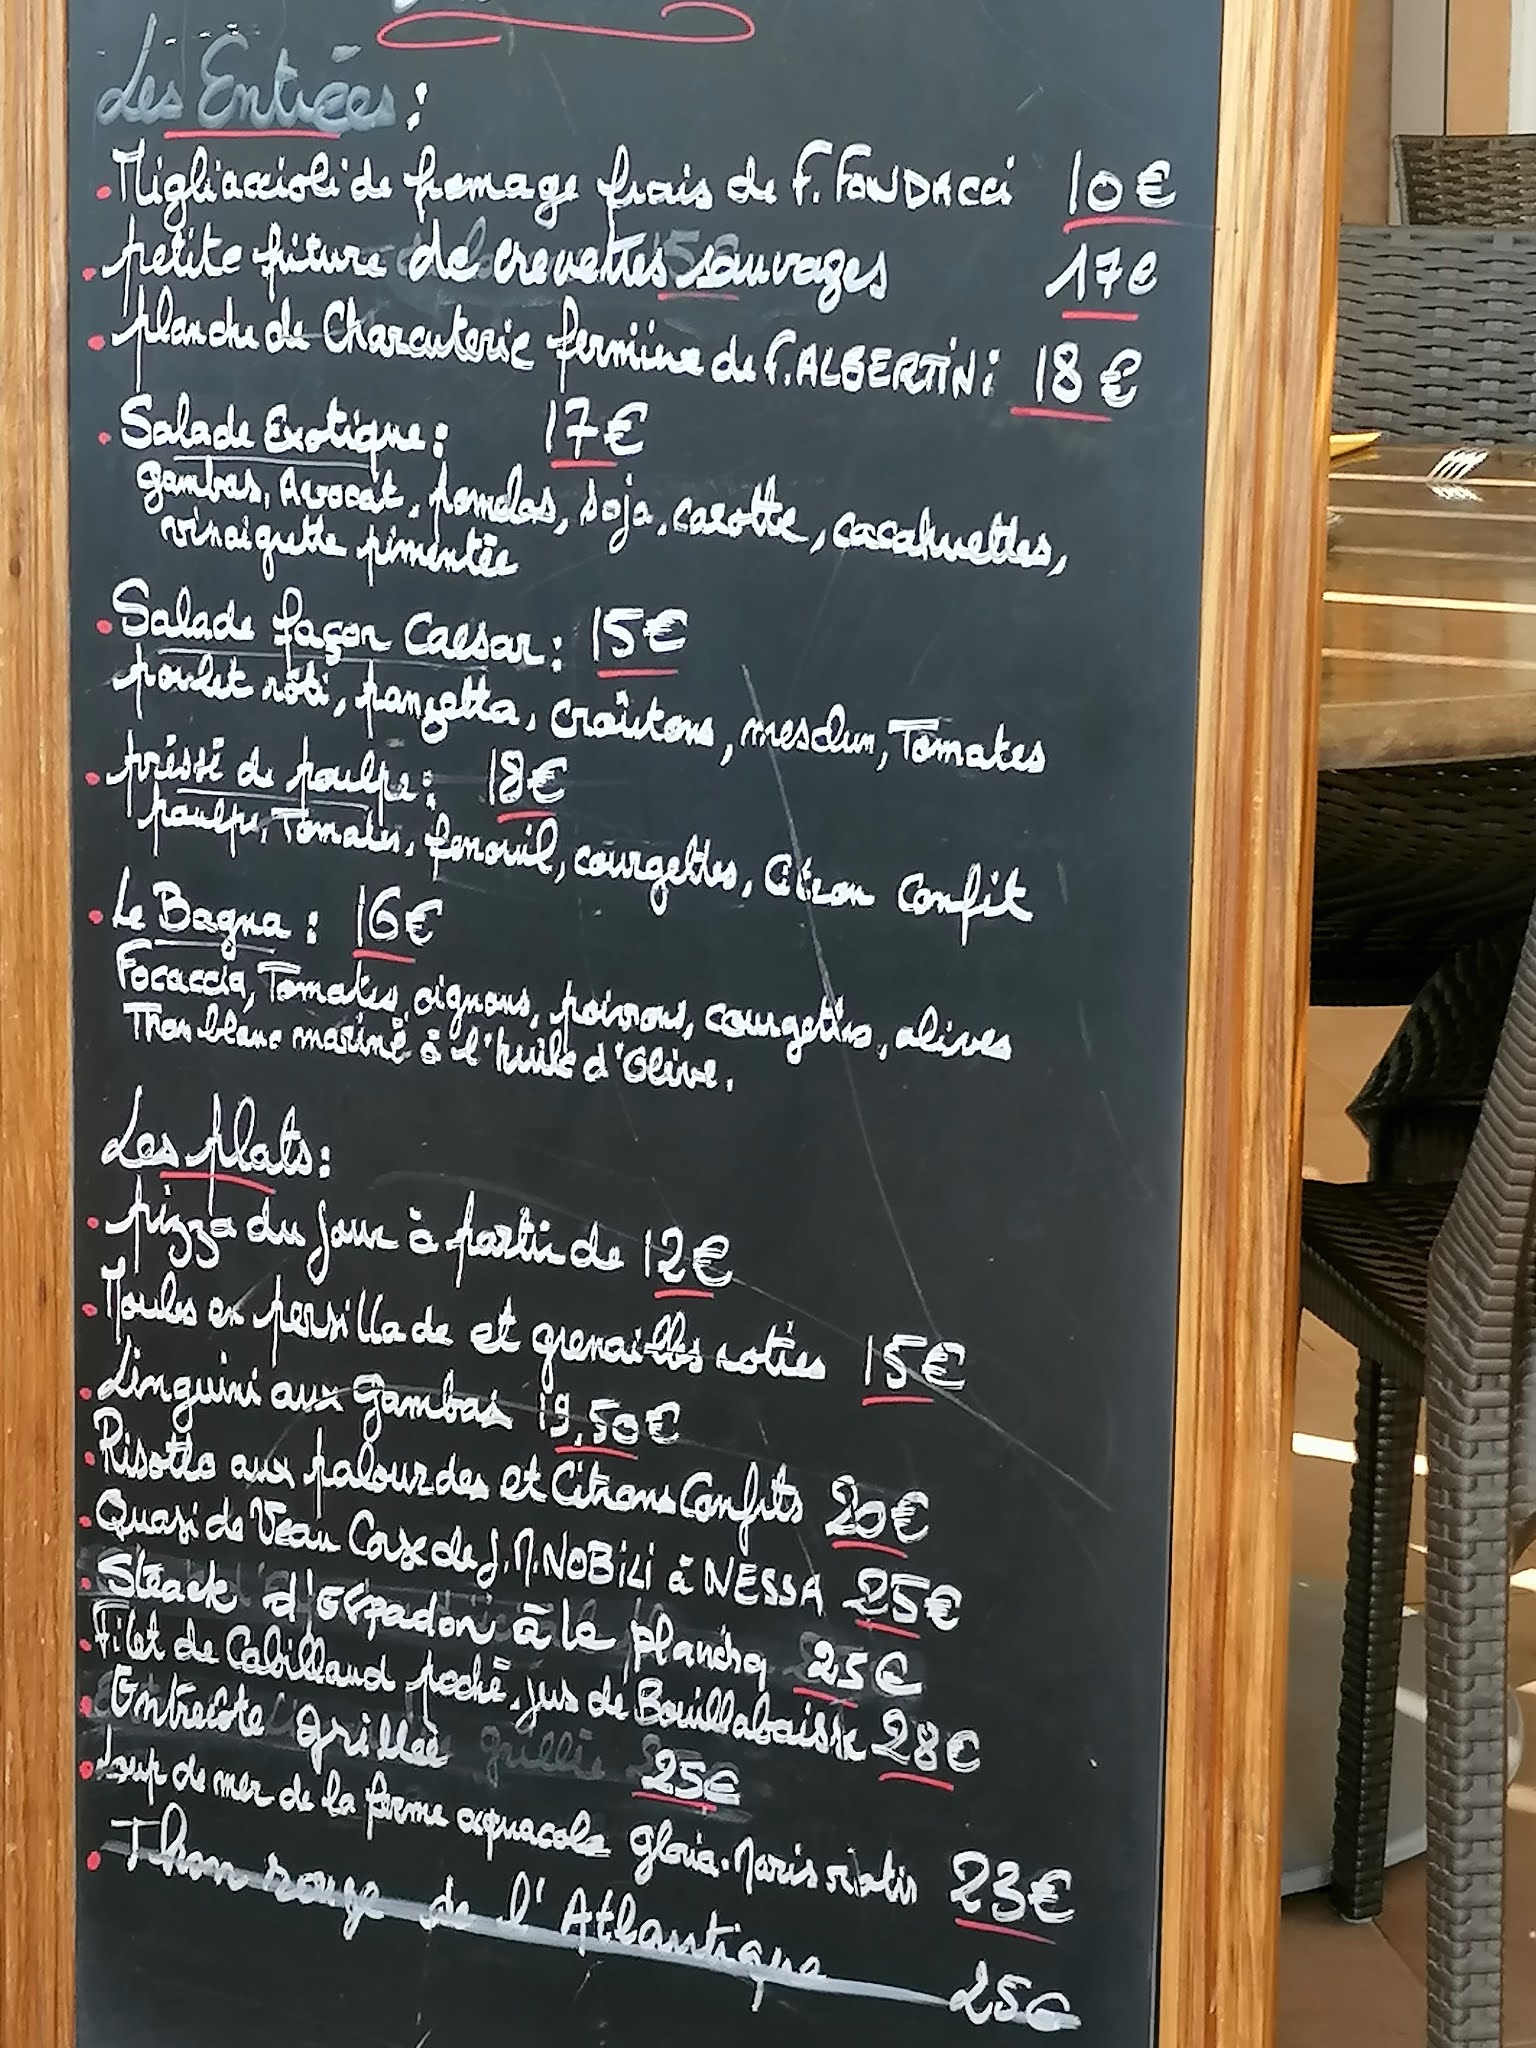 Les Entrées :
. Migliaccioli de fromage frais de F. FONDACCi 10€
. petite friture de crevettes sauvages 17€
. planche de Charcuterie fermière de F. ALBERTiNi 18€
. Salade Exotique : 17€
gambas, Avocat, pomelos, soja, carotte, cacahuettes,
vinaigrette pimentée
. Salade façon Caesar : 15€
poulet rôti, panzetta, croûtons, mesclun, Tomates
. préssé de poulpe : 18€
poulpe, Tomates, fenouil, courgettes, Citron Confit
. Le Bagna : 16€
Focaccia, Tomates, oignons, poivrons, courgettes, olives
Thon blanc mariné à l'huile d'Olive.
Les plats :
. pizza du jour à partir de 12€
. Moules en persillade et grenailles roties 15€
. Linguini aux Gambas 19,50€
. Risotto aux palourdes et Citrons Confits 20€
. Quasi de Veau Corse de J.M. NOBiLi à NESSA 25€
. Steack d'Espadon à la plancha 25€
. Filet de Cabillaud poché, jus de Bouillabaisse 28€
. Entrecôte grillée 25€
. Loup de mer de la ferme aquacole gloria-Maris rotis 23€
. Thon rouge de l'Atlantique 25€